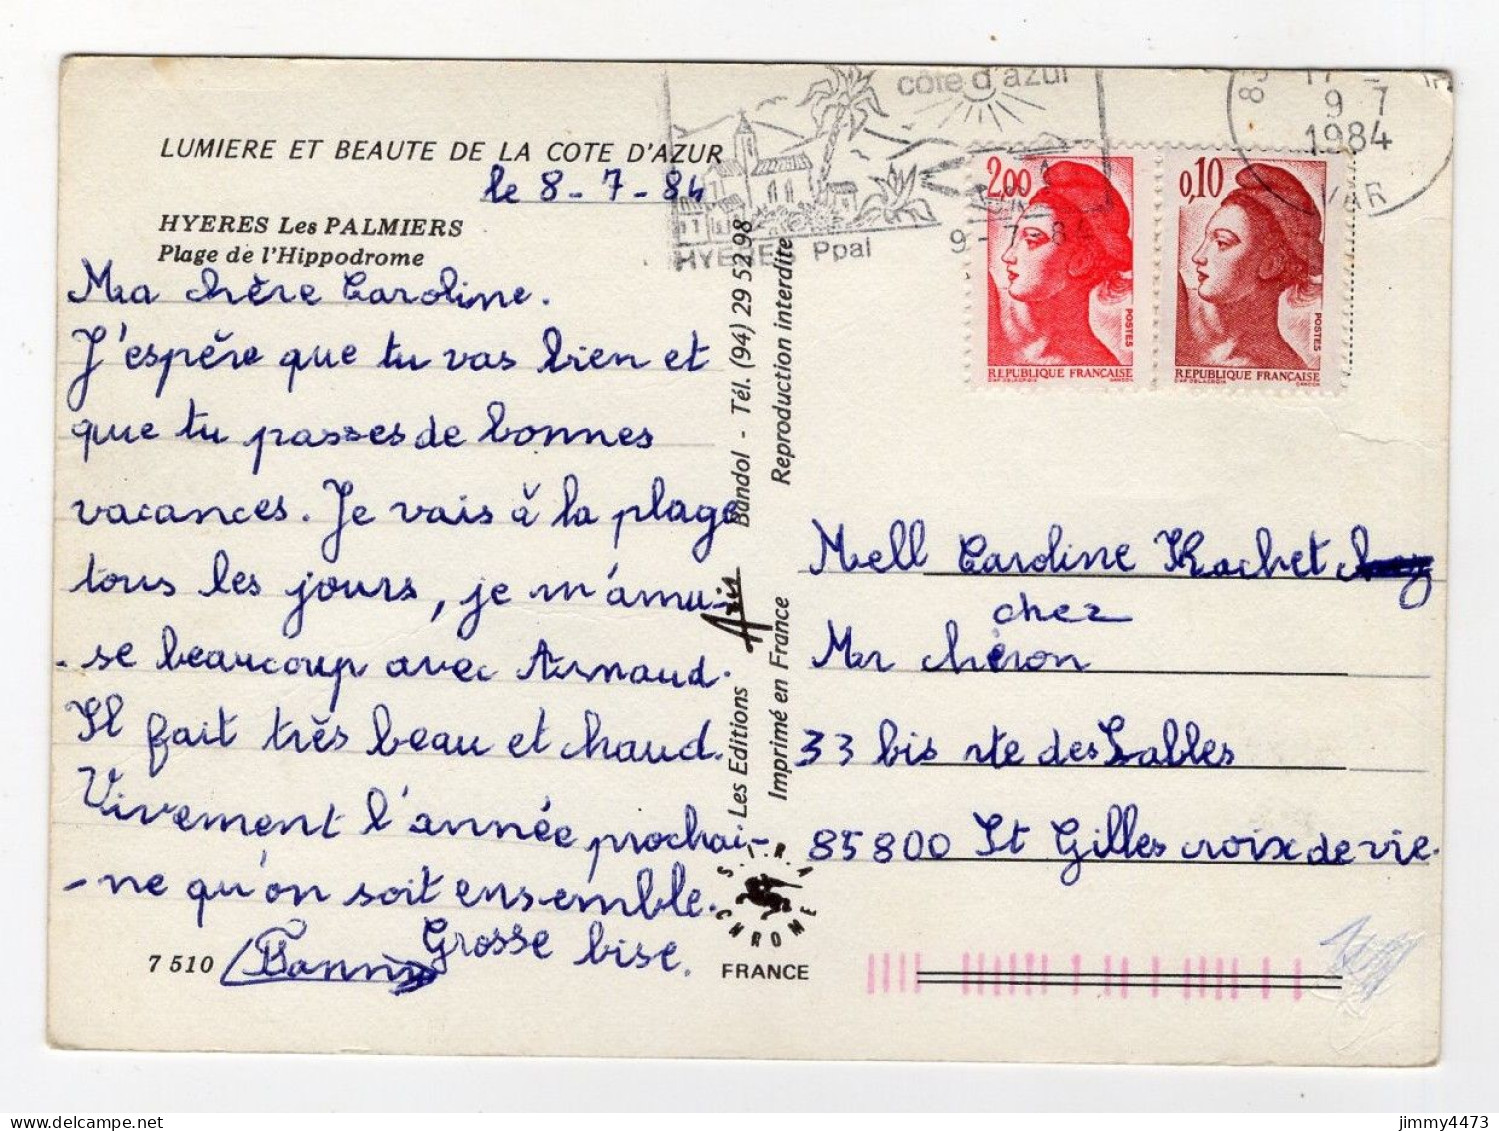 LUMIERE ET BEAUTE DE LA COTE D'AZUR
le 8-7-84
HYERES Les PALMIERS
Plage de l'Hippodrome
Ma chère Caroline.
J'espère que tu vas bien et
que tu passes de bonnes
vacances. Je vais à la plage
tous les jours, je m'amu-
-se beaucoup avec Arnaud.
Il fait très beau et chaud.
Vivement l'année prochai-
-ne qu'on soit ensemble.
Grosse bise.
7 510
Les Editions Aris Bandol - Tél. (94) 29 52 98
Imprimé en France Reproduction interdite
S.I.R.A.
CHROME
FRANCE
côte d'azur
HYERES Ppal
9-7-84
17
9 7
1984
VAR
2,00
POSTES
REPUBLIQUE FRANÇAISE
0,10
POSTES
REPUBLIQUE FRANÇAISE
Mell Caroline Rochet
chez
Mr chéron
33 bis rte des Sables
85800 St Gilles croix de vie.
jimmy4473